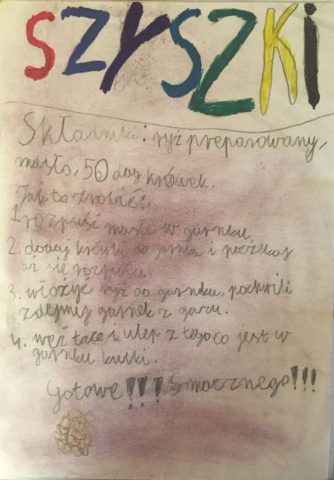 SZYSZKI
Składniki: ryż preparowany,
masło, 50 dag krówek.
Jak to zrobić:
1. rozpuść masło w garnku.
2. dodaj krówki do garnka i poczekaj
aż się rozpuszczą.
3. włożyć ryż do garnka, po chwili
zdejmij garnek z gazu.
4. weź tace i ulep z tego co jest w
garnku kulki.
Gotowe!!! Smacznego!!!